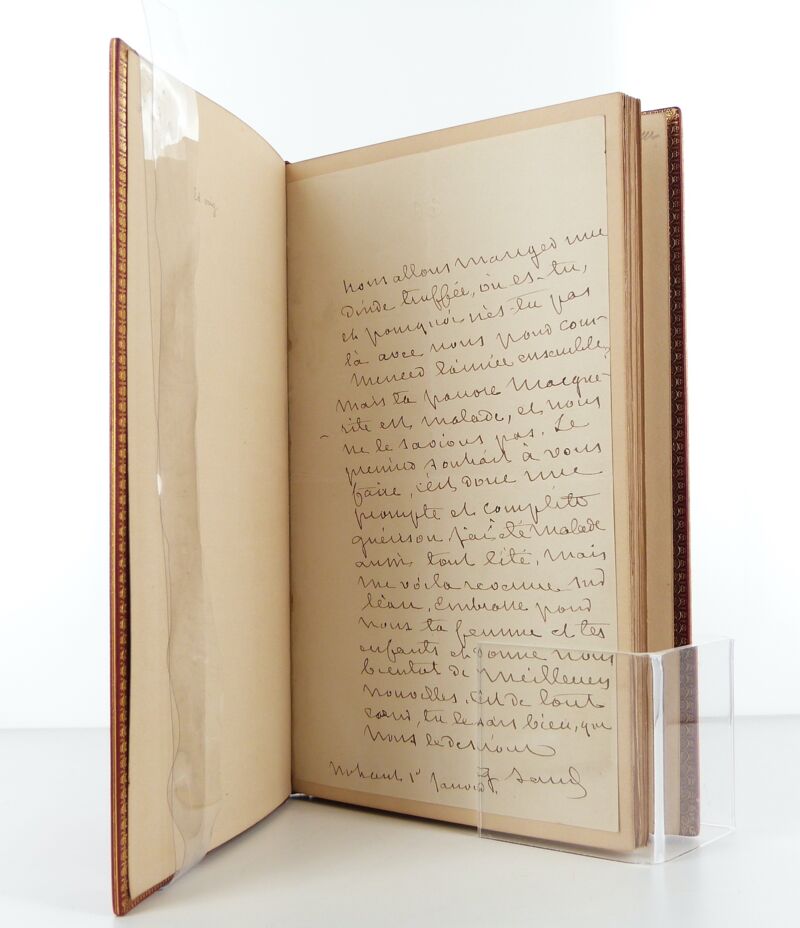 nous allons manger une
dinde truffée, où es-tu,
et pourquoi n'es-tu pas
là avec nous pour com-
mencer l'année ensemble,
mais ta pauvre Margue-
rite est malade, et nous
ne le savions pas. Le
premier souhait à vous
faire, c'est donc une
prompte et complète
guérison. j'ai été malade
aussi tout l'été, mais
me voila revenue sur
l'eau. Embrasse pour
nous ta femme et tes
enfants et donne nous
bientot de meilleures
nouvelles. C'est de tout
cœur, tu le sais bien, que
nous le desirons
G Sand
Nohant 1er Janvier.